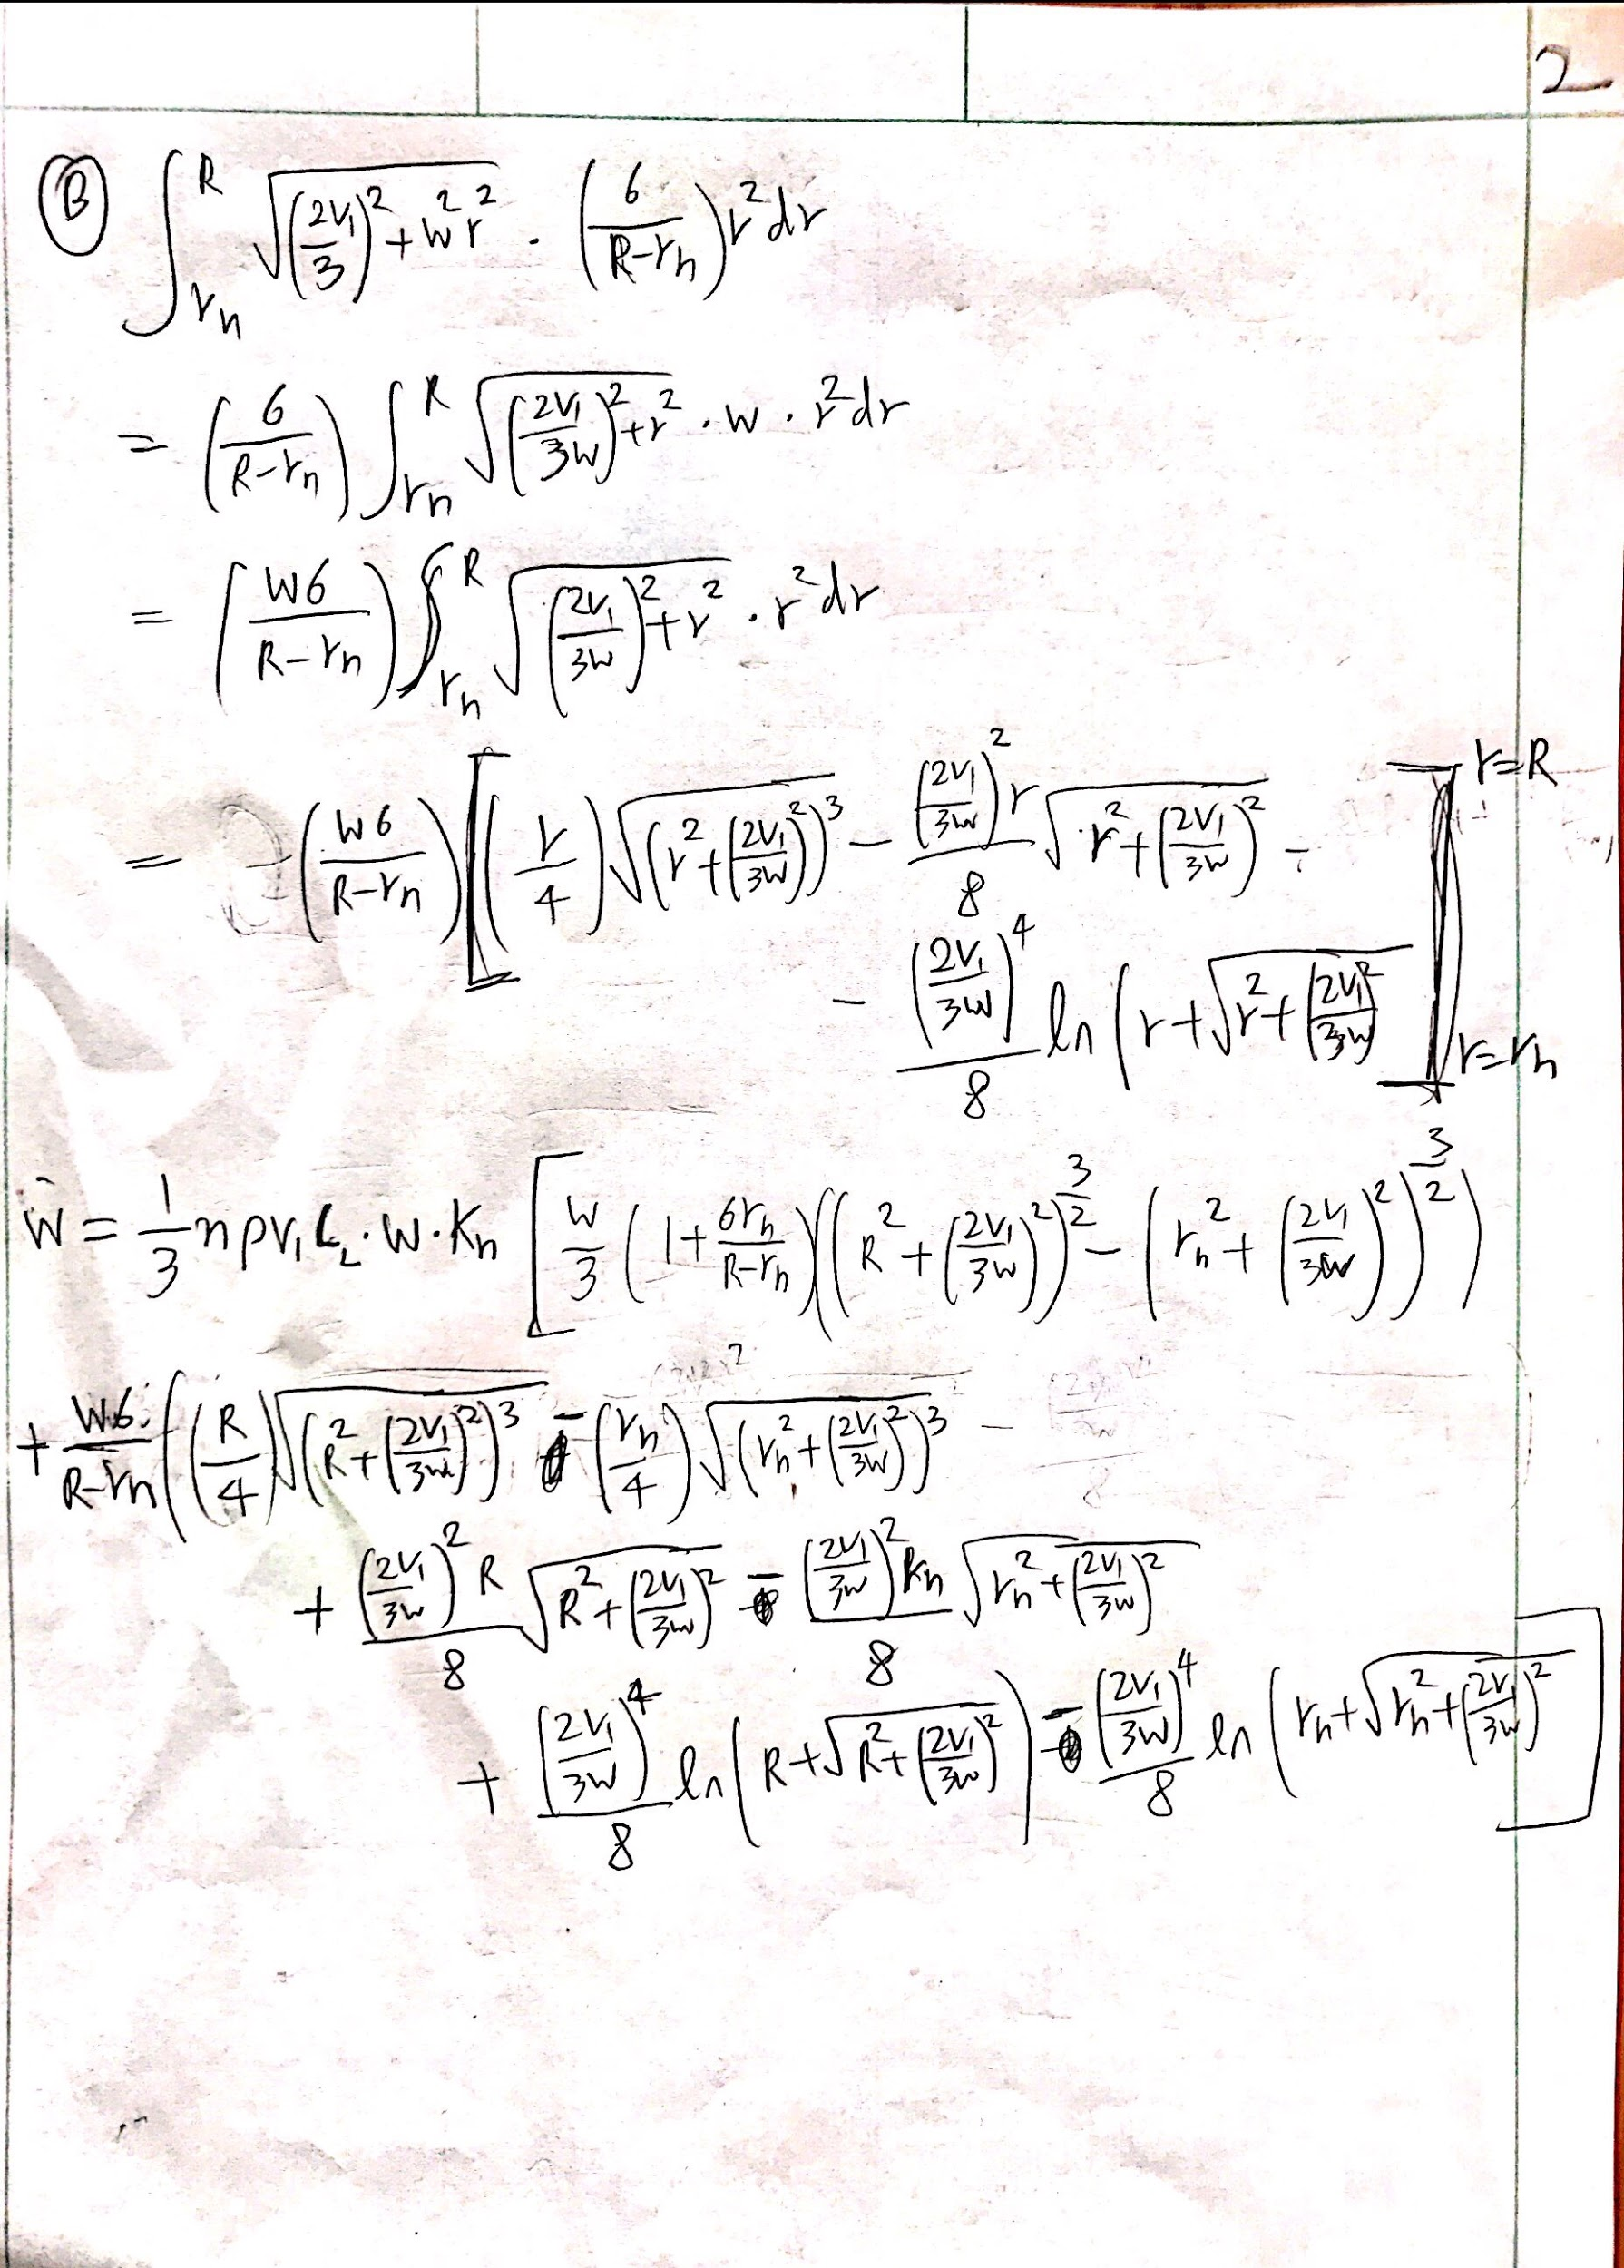 2
Ⓑ ∫_{rₙ}^{R} √((2V₁/3)² + w²r²) · (6/(R-rₙ)) r² dr
= (6/(R-rₙ)) ∫_{rₙ}^{R} √((2V₁/3w)² + r²) · w · r² dr
= (w6/(R-rₙ)) ∫_{rₙ}^{R} √((2V₁/3w)² + r²) · r² dr
= (w6/(R-rₙ)) [(r/4) √((r² + (2V₁/3w)²)³) - ((2V₁/3w)² r/8) √(r² + (2V₁/3w)²) - r=R
- ((2V₁/3w)⁴/8) ln(r + √(r² + (2V₁/3w)²) ] r=rₙ
Ẇ = 1/3 n ρ V₁ C₂ · w · Kₙ [ w/3 (1 + 6rₙ/(R-rₙ)) ((R² + (2V₁/3w)²)^{3/2} - (rₙ² + (2V₁/3w)²)^{3/2})
+ w6/(R-rₙ) ((R/4) √((R² + (2V₁/3w)²)³) - (rₙ/4) √((rₙ² + (2V₁/3w)²)³)
+ ((2V₁/3w)² R/8) √(R² + (2V₁/3w)²) - ((2V₁/3w)² Rₙ/8) √(rₙ² + (2V₁/3w)²)
+ ((2V₁/3w)⁴/8) ln(R + √(R² + (2V₁/3w)²)) - ((2V₁/3w)⁴/8) ln(rₙ + √(rₙ² + (2V₁/3w)²) ]